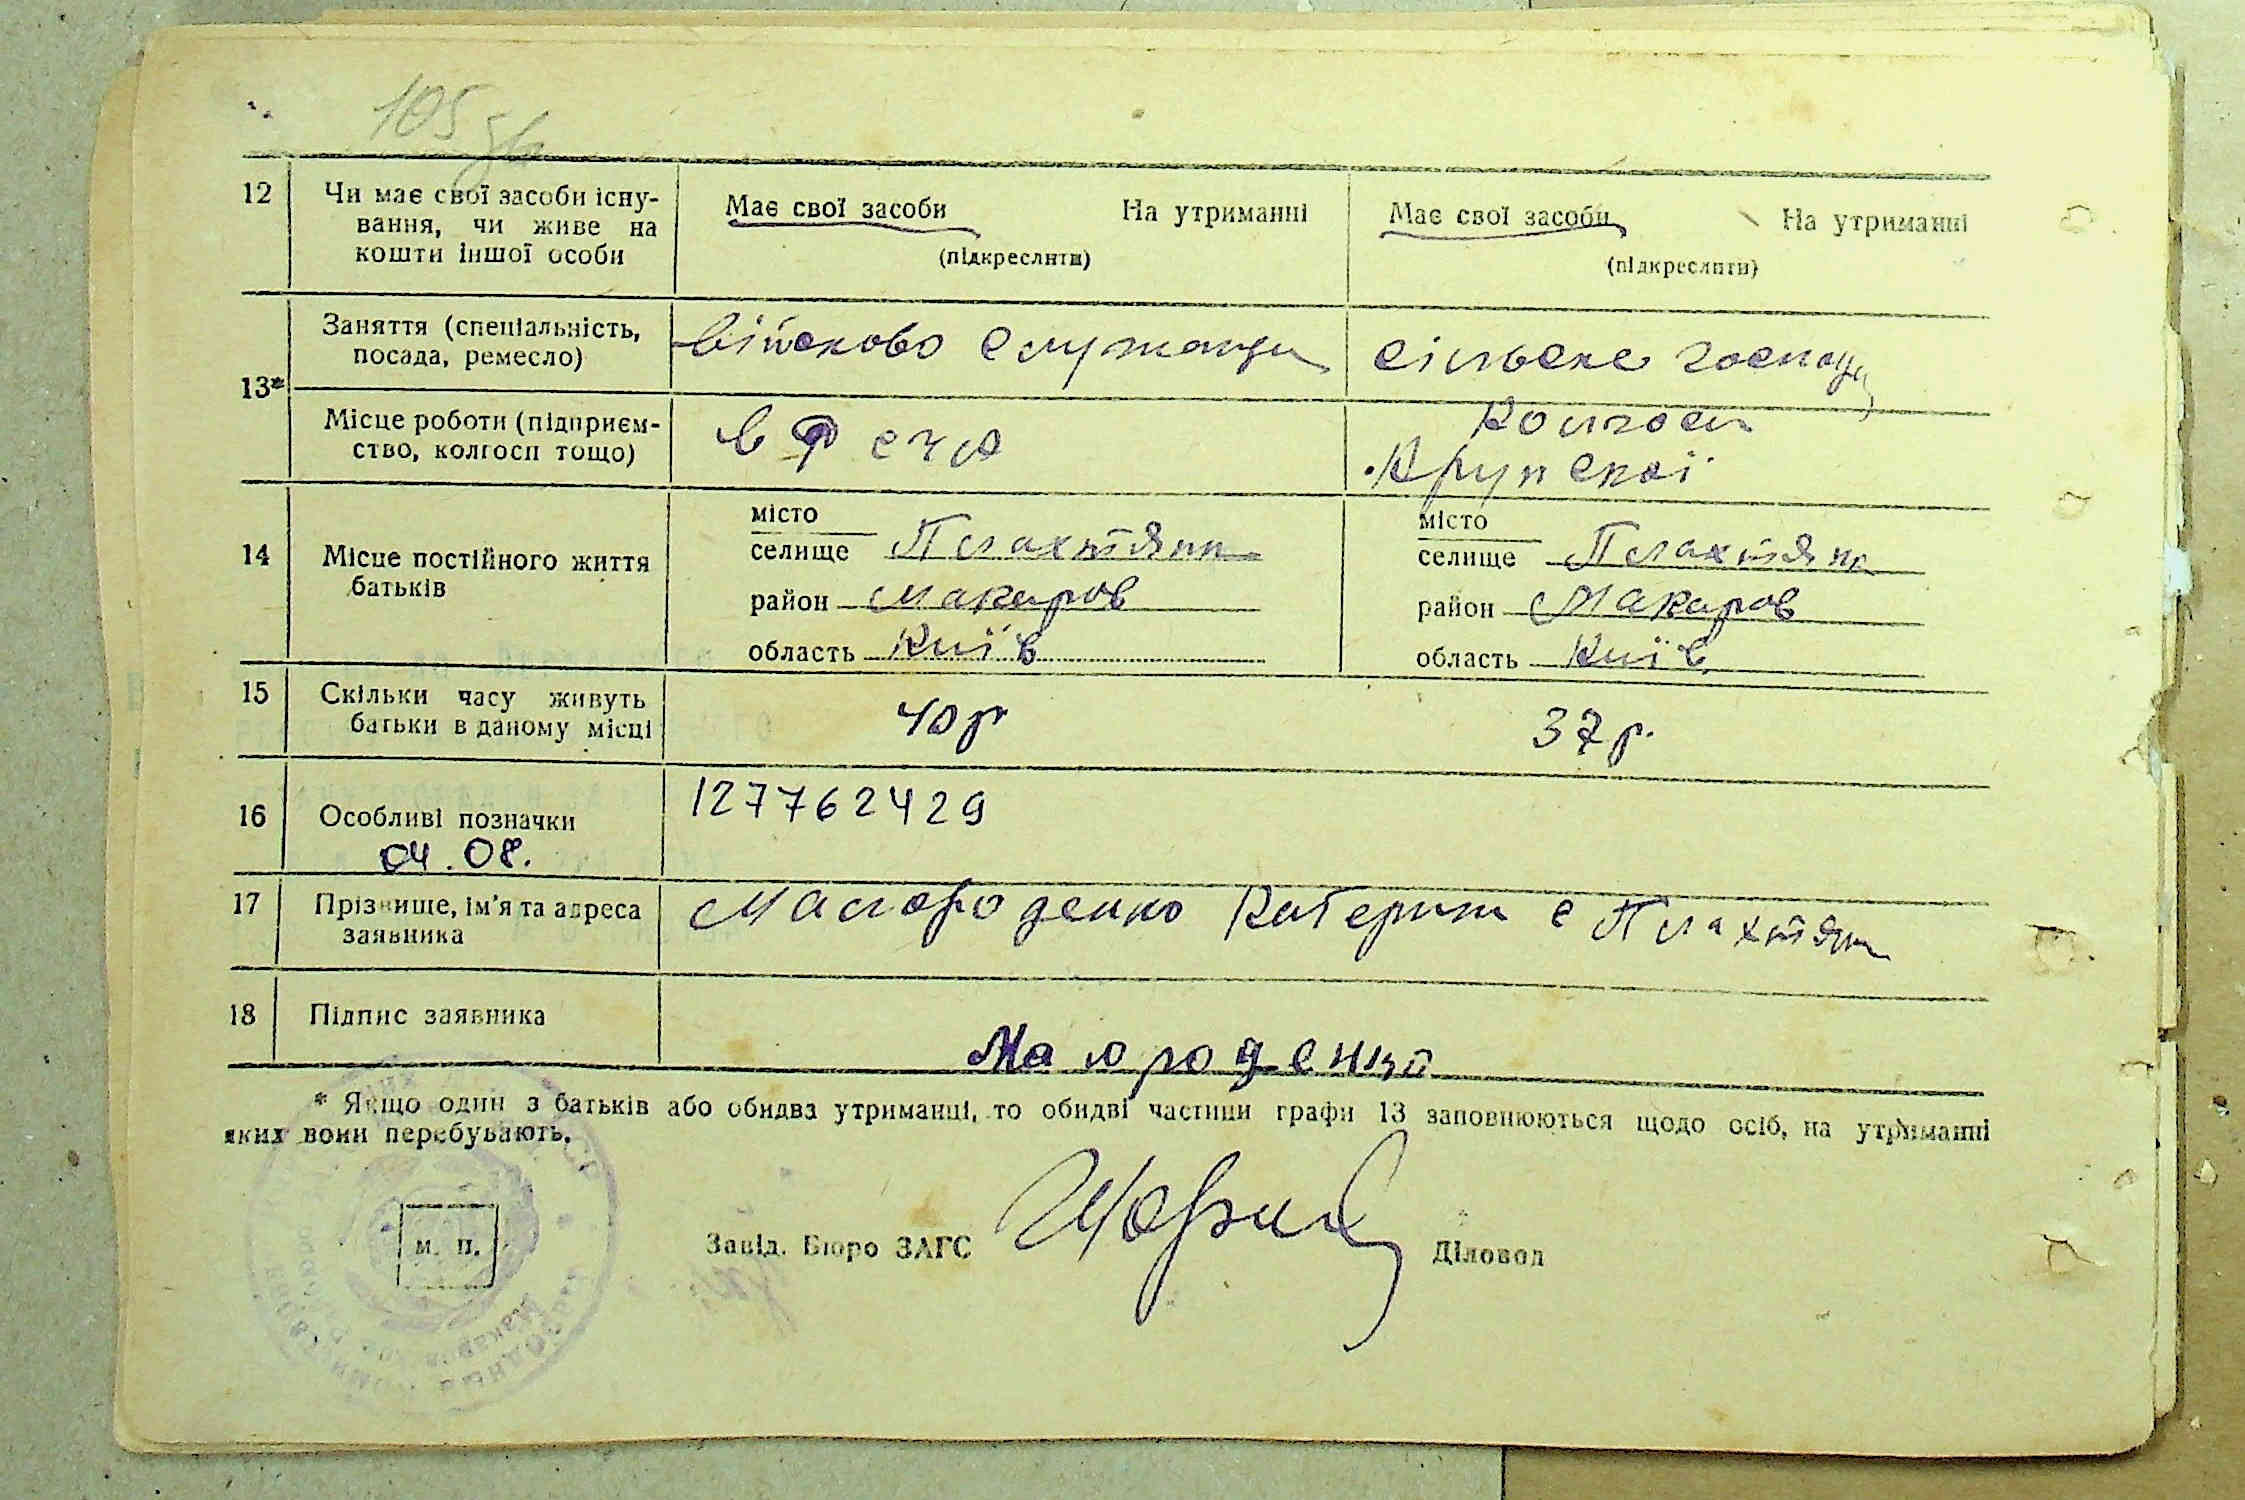 105 зв
12 Чи має свої засоби існу- Має свої засоби На утриманні Має свої засоби На утриманні
вання, чи живе на (підкреслити) (підкреслити)
кошти іншої особи
13* Заняття (спеціальність, військово служащи сільске господ
посада, ремесло)
Місце роботи (підприєм- в РСЧА Колгосп
ство, колгосп тощо) Крупскої
14 Місце постійного життя місто місто
батьків селище Плахтянк селище Плахтянк
район Макаров район Макаров
область Київ область Київ
15 Скільки часу живуть 40 р 37 р.
батьки в даному місці
16 Особливі позначки 127762429
04.08.
17 Прізвище, ім'я та адреса Катерин с Плахтян
заявника
18 Підпис заявника
* Якщо один з батьків або обидва утриманці, то обидві частини графи 13 заповнюються щодо осіб, на утриманні
яких вони перебувають.
м. п. Завід. Бюро ЗАГС Діловод